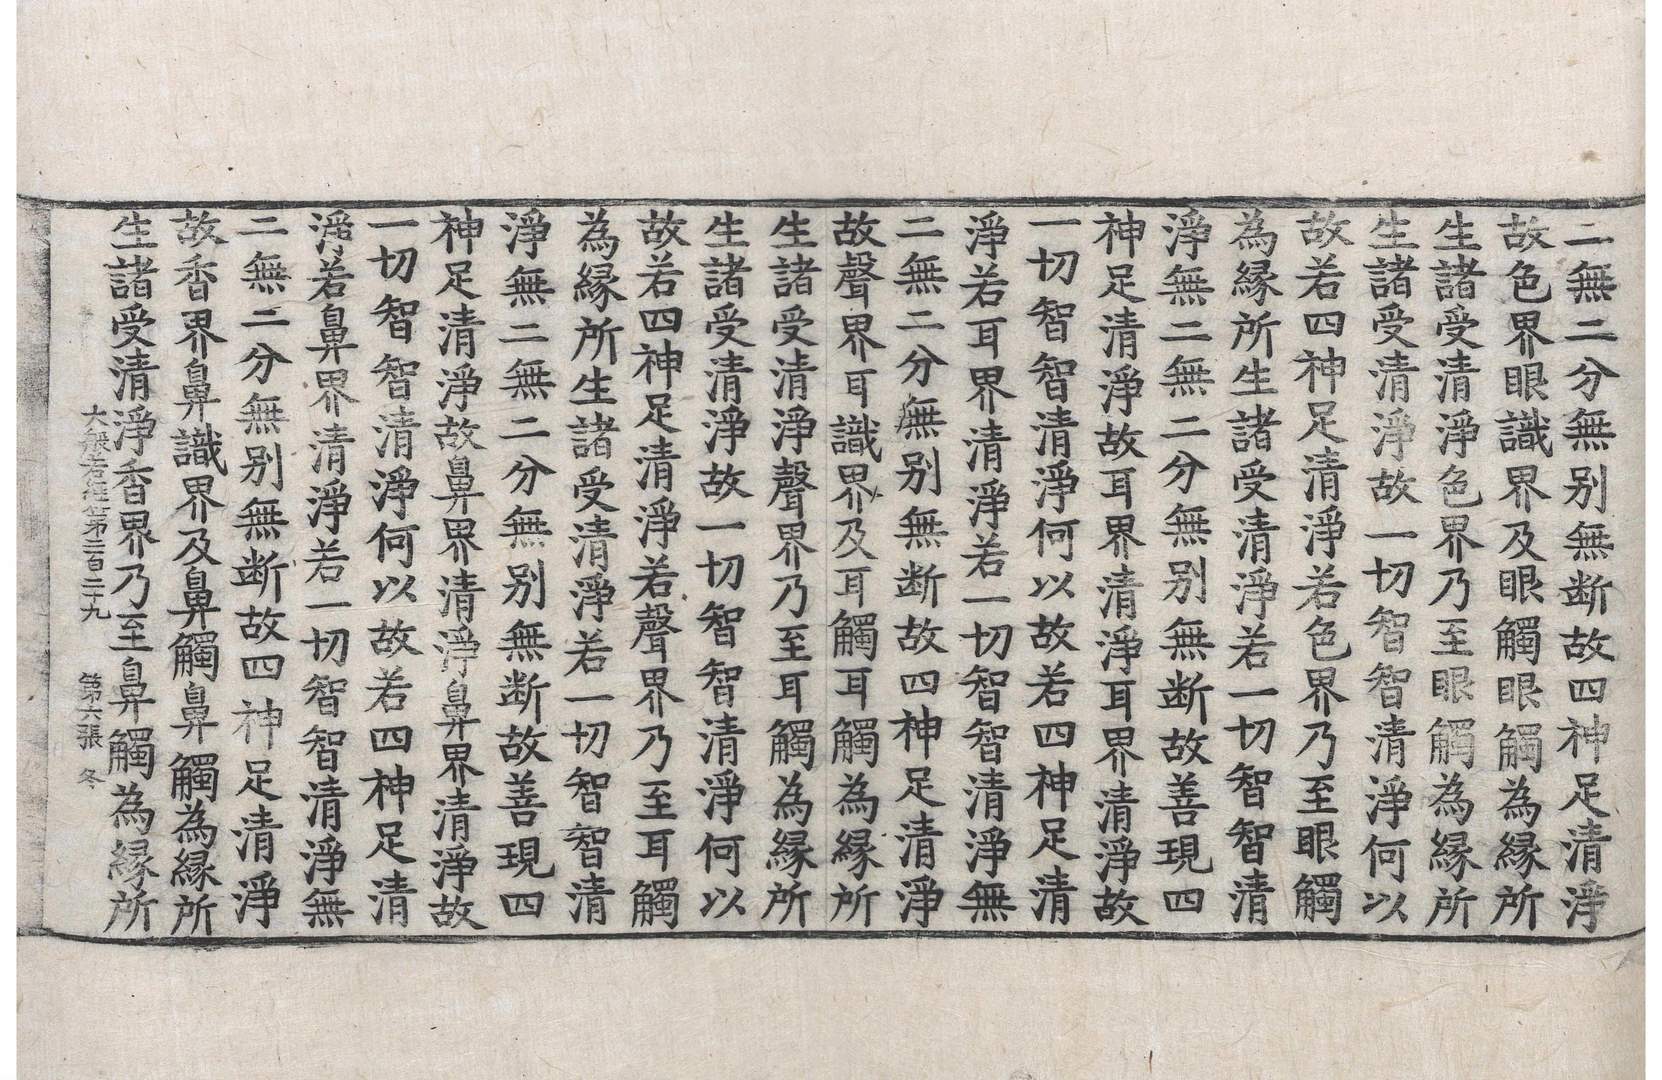 二無二分無别無断故四神足清淨
故色界眼識界及眼觸眼觸為縁所
生諸受清淨色界乃至眼觸為縁所
生諸受清淨故一切智智清淨何以
故若四神足清淨若色界乃至眼觸
為縁所生諸受清淨若一切智智清
淨無二無二分無别無断故善現四
神足清淨故耳界清淨耳界清淨故
一切智智清淨何以故若四神足清
淨若耳界清淨若一切智智清淨無
二無二分無别無断故四神足清淨
故聲界耳識界及耳觸耳觸為縁所
生諸受清淨聲界乃至耳觸為縁所
生諸受清淨故一切智智清淨何以
故若四神足清淨若聲界乃至耳觸
為縁所生諸受清淨若一切智智清
淨無二無二分無别無断故善現四
神足清淨故鼻界清淨鼻界清淨故
一切智智清淨何以故若四神足清
淨若鼻界清淨若一切智智清淨無
二無二分無别無断故四神足清淨
故香界鼻識界及鼻觸鼻觸為縁所
生諸受清淨香界乃至鼻觸為縁所
大般若經第二百二十九 第六張 冬